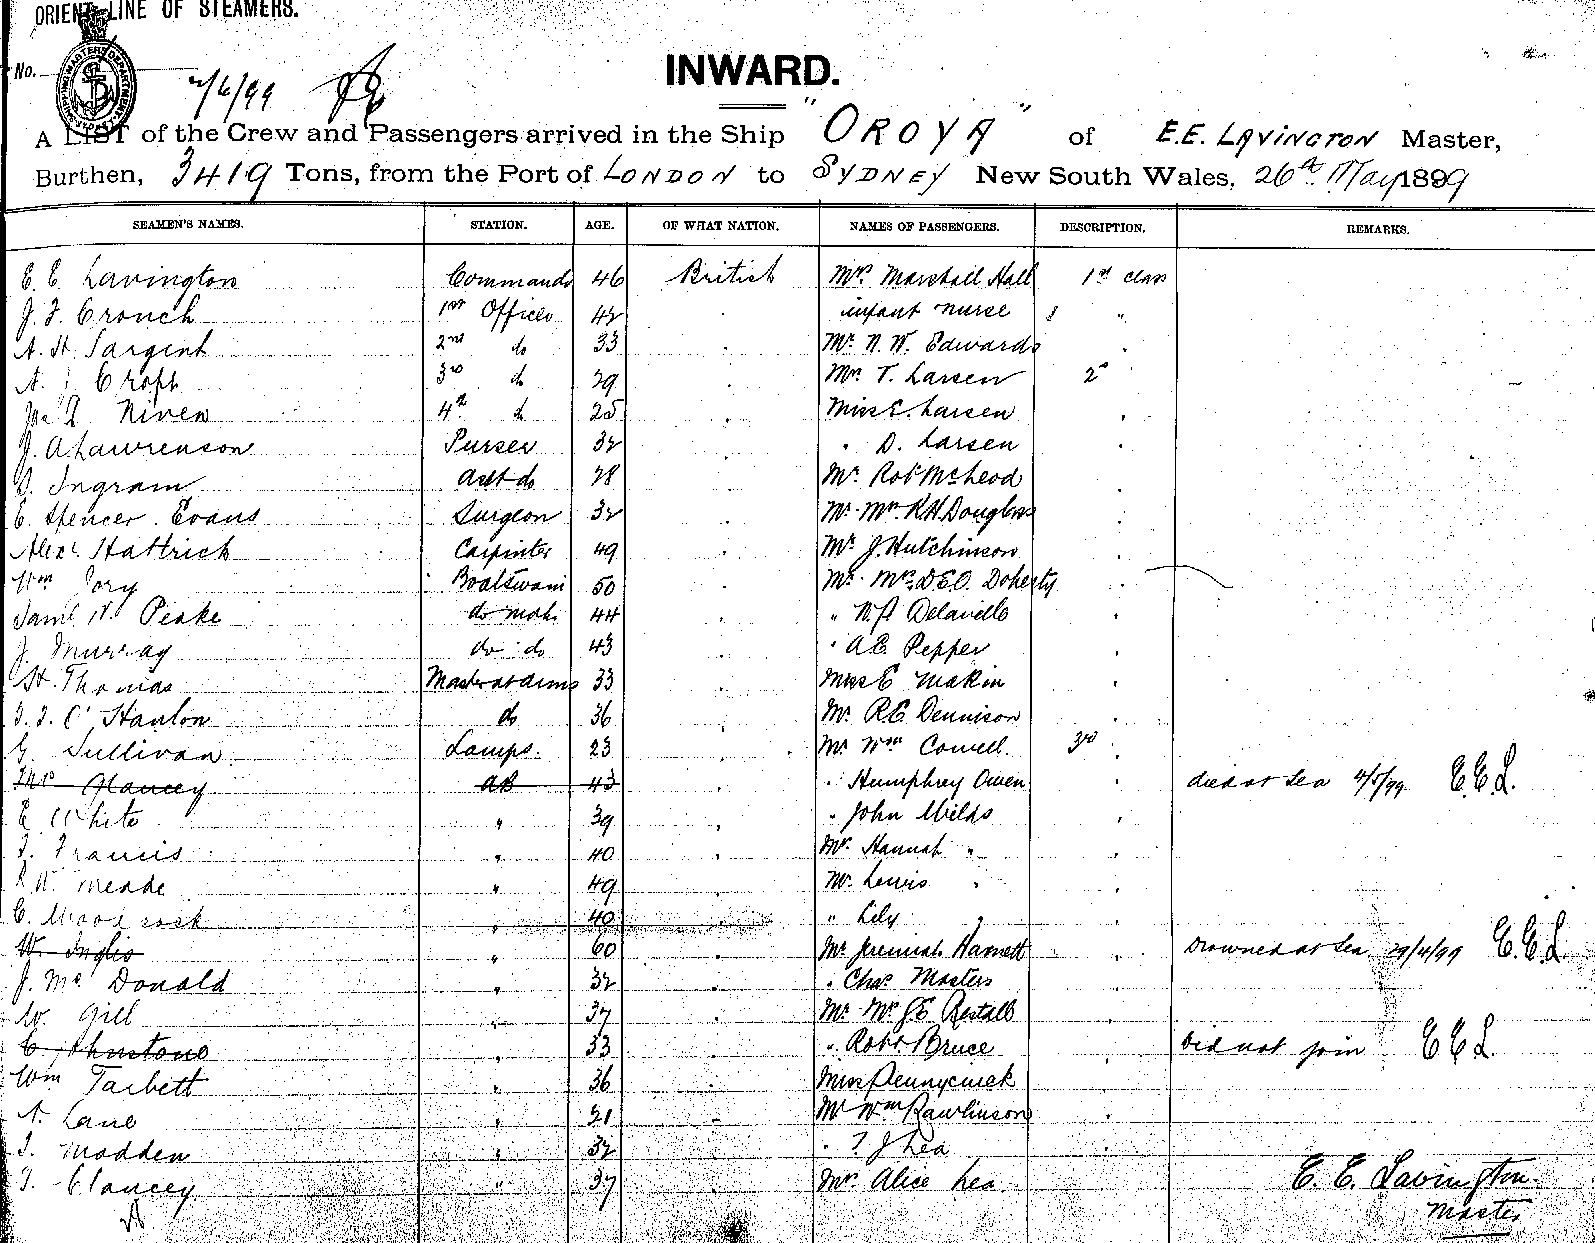 ORIENT LINE OF STEAMERS.
No.
INWARD.
A LIST of the Crew and Passengers arrived in the Ship "OROYA" of E.E. LAVINGTON Master,
Burthen, 3419 Tons, from the Port of LONDON to SYDNEY New South Wales, 26th May 1899
SEAMEN'S NAMES. STATION. AGE. OF WHAT NATION. NAMES OF PASSENGERS. DESCRIPTION. REMARKS.
E. E. Lavington Commander 46 British Mrs Marshall Hall 1st class
J. F. Crouch 1st Officer 42 " infant nurse "
A. H. Sargent 2nd do 33 " Mr. N. W. Edwards "
A. Croft 3rd do 29 " Mrs T. Larsen 2nd
Niven 4th do 25 " Miss E. Larsen "
J. A. Lawrenson Purser 32 " " D. Larsen "
Ingram Asst do 28 " Mr Robt McLeod "
E. Spencer Evans Surgeon 32 " Mr. Mrs R H Douglass "
Alexr Hattrick Carpenter 49 " Mr J. Hutchinson "
Wm Jory Boatswain 50 " Mr. Mrs D E O. Doherty "
Saml Peake do mate 44 " "
J. Murray do do 43 " " A E Pepper "
H. Thomas Master at arms 33 " Miss E Makin "
O'Hanlon do 36 " Mr. R E Dennison "
G. Sullivan Lamps. 23 " Mr Wm Cowell. 3rd
Clancey AB 43 " Humphrey Owen " died at sea 4/5/99 E.E.L.
E White " 39 " " John Milds "
Francis " 40 " Mrs Hannah " "
Meade " 49 " Mr. Lewis " "
C. " 40 " Lily " "
W. Inglis " 60 " Mr Jeremiah " Drowned at Sea 29/4/99 E.E.L
J. Mc Donald " 32 " " Chas Masters "
W. Gill " 37 " Mr Mrs J E Restall "
C Johnstone " 33 " " Robt Bruce " Did not join E E L
Wm Tarbett " 36 " Miss Pennycuick
A. Lane " 21 " Mr Wm Rawlinson "
Madden " 32 " " T. J Lea
Clancey " 37 " Mrs Alice Lea
E. E. Lavington
Master